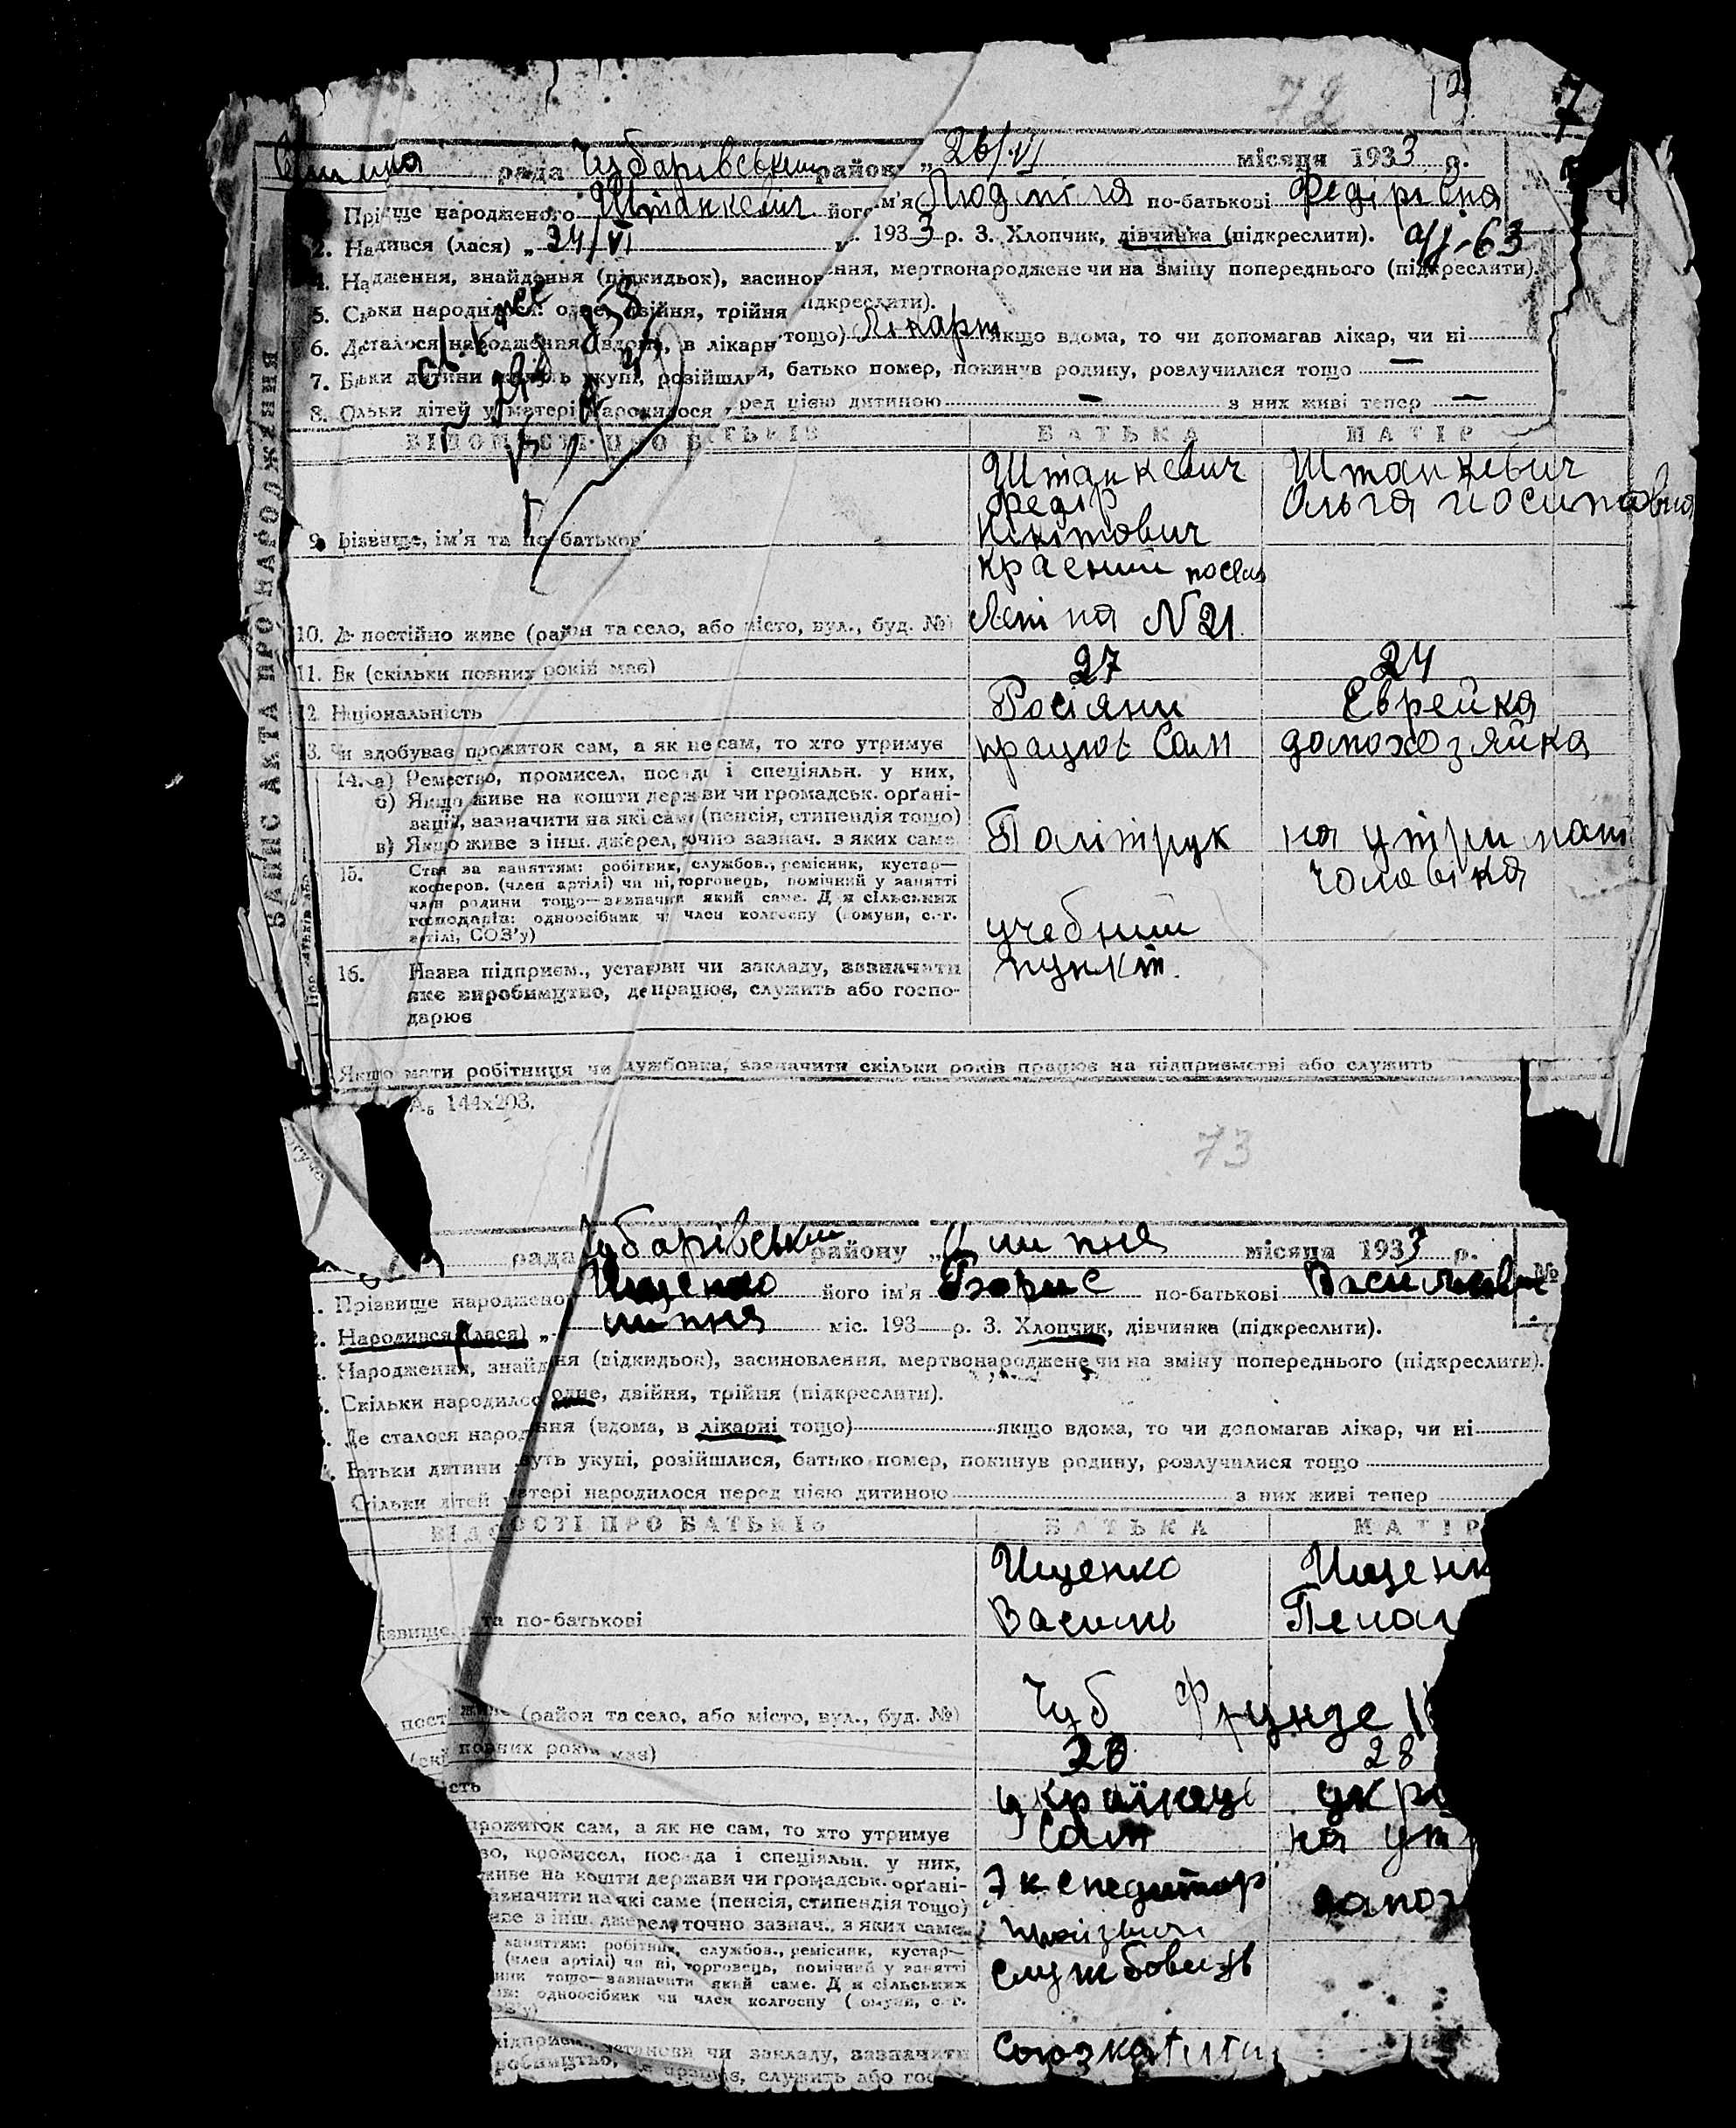 72
рада Чубарівський району „26/VI місяця 1933 р.
Прізвище народженого Штанкевич його ім'я Людміла по-батькові Федірівна
2. Народився (лася) „24/VI 1933 р. 3. Хлопчик, дівчинка (підкреслити).
4. Народження, знайдення (підкидьок), засиновлення, мертвонароджене чи на зміну попереднього (підкреслити).
5. Скільки народилося: одне, двійня, трійня підкреслити).
6. Де сталося народження (вдома, в лікарні тощо) Лікарн якщо вдома, то чи допомагав лікар, чи ні
7. Батьки дитини живуть укупі, розійшлися, батько помер, покинув родину, розлучилися тощо —
8. Скільки дітей у матері народилося перед цією дитиною — з них живі тепер —
ВІДОМОСТІ ПРО БАТЬКІВ БАТЬКА МАТІР
ЗАПИС АКТА ПРО НАРОДЖЕННЯ
Штанкевич Штанкевич
Федір Ольга Йосиповна
9. Прізвище, ім'я та по-батькові Нікітович
Красний посел
10. Де постійно живе (район та село, або місто, вул., буд. №) Леніна N 21
11. Вік (скільки повних років має) 27 24
12. Національність Росіянин Еврейка
13. Чи здобуває прожиток сам, а як не сам, то хто утримує працює Сам домохозяйка
14. а) Ремество, промисел, посада і спеціяльн. у них,
б) Якщо живе на кошти держави чи громадськ. органі-
зації, зазначити на які саме (пенсія, стипендія тощо)
в) Якщо живе з інш. джерел, точно зазнач. з яких саме Політрук на утриман
чоловіка
15. Стан за заняттям: робітник, службов., ремісник, кустар—
коопєров. (член артілі) чи ні, торговець, помічний у занятті
член родини тощо—зазначити який саме. Для сільських
господарів: одноосібник чи член колгоспу (комуни, с.-г.
артілі, СОЗ'у) учебний
16. Назва підприєм., установи чи закладу, зазначити пункт.
яке виробництво, де працює, служить або госпо-
дарює
Якщо мати робітниця чи службовка, зазначити скільки років працює на підприємстві або служить
А₅ 144х203.
73
рада Чубарівський району „ липня місяця 1933 р. №
1. Прізвище народженого Ищенко його ім'я Борис по-батькові Василов
2. Народився (лася) „ липня міс. 193 р. 3. Хлопчик, дівчинка (підкреслити).
Народження, знайдення (підкидьок), засиновлення, мертвонароджене чи на зміну попереднього (підкреслити).
Скільки народилося одне, двійня, трійня (підкреслити).
Де сталося народження (вдома, в лікарні тощо) якщо вдома, то чи допомагав лікар, чи ні
Батьки дитини живуть укупі, розійшлися, батько помер, покинув родину, розлучилися тощо
Скільки дітей матері народилося перед цією дитиною з них живі тепер
ВІДОМОСТІ ПРО БАТЬКІВ БАТЬКА МАТІР
Ищенко Ищенк
та по-батькові Василь Пелаг
живе (район та село, або місто, вул., буд. №) Чуб Фрунзе
повних років має) 28 28
українець укра
прожиток сам, а як не сам, то хто утримує Сам на ут
во, промисел, посада і спеціяльн. у них,
живе на кошти держави чи громадськ. органі- Экспедитор
азначити на які саме (пенсія, стипендія тощо)
иве з інш. джерел, точно зазнач. з яких саме.
заняттям: робітник, службов., ремісник, кустар—
(член артілі) чи ні, торговець, помічний у занятті службовець
ини тощо—зазначити який саме. Для сільських
ів: одноосібник чи член колгоспу (комуни, с.-г.
підприєм., установи чи закладу, зазначити
робництво, де працює, служить або гос